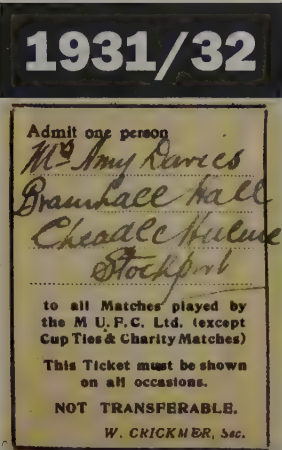 1931/32
Admit one person
Mrs Amy Davies
Bramhall Hall
Cheadle Hulme
Stockport
to all Matches played by
the M U.F.C. Ltd. (except
Cup Ties & Charity Matches)
This Ticket must be shown
on all occasions.
NOT TRANSFERABLE.
W. CRICKMER, Sec.